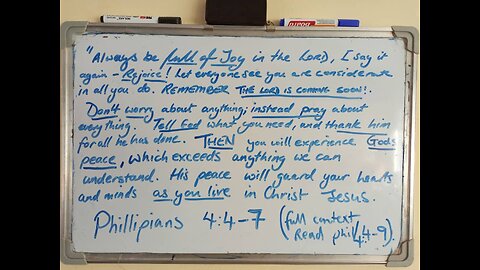 "Always be full of Joy in the Lord, I say it
again - Rejoice! Let everyone see you are considerate
in all you do. Remember the Lord is coming soon!.
Don't worry about anything; instead pray about
everything. Tell God what you need, and thank him
for all he has done. THEN you will experience Gods
peace, which exceeds anything we can
understand. His peace will guard your hearts
and minds as you live in Christ Jesus.
Phillipians 4:4-7 (full context
Read phil 4:4-9).